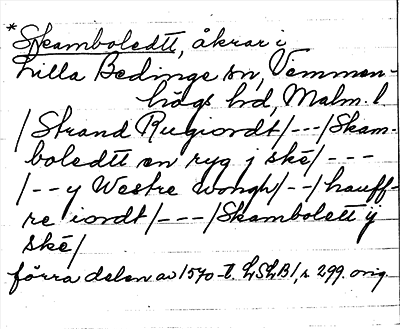 *Skamboledtt, åkrar i
Lilla Bedinge sn, Vemmen-
högs hd, Malm. l
/Strand Rugiordt/---/Skam-
boledtt en ryg j ské/---
/--y Westre wongh/--/hauff-
re iordt/---/Skambolett y
ské/
förra delen av 1570-t. LSLB 1, s 299. orig